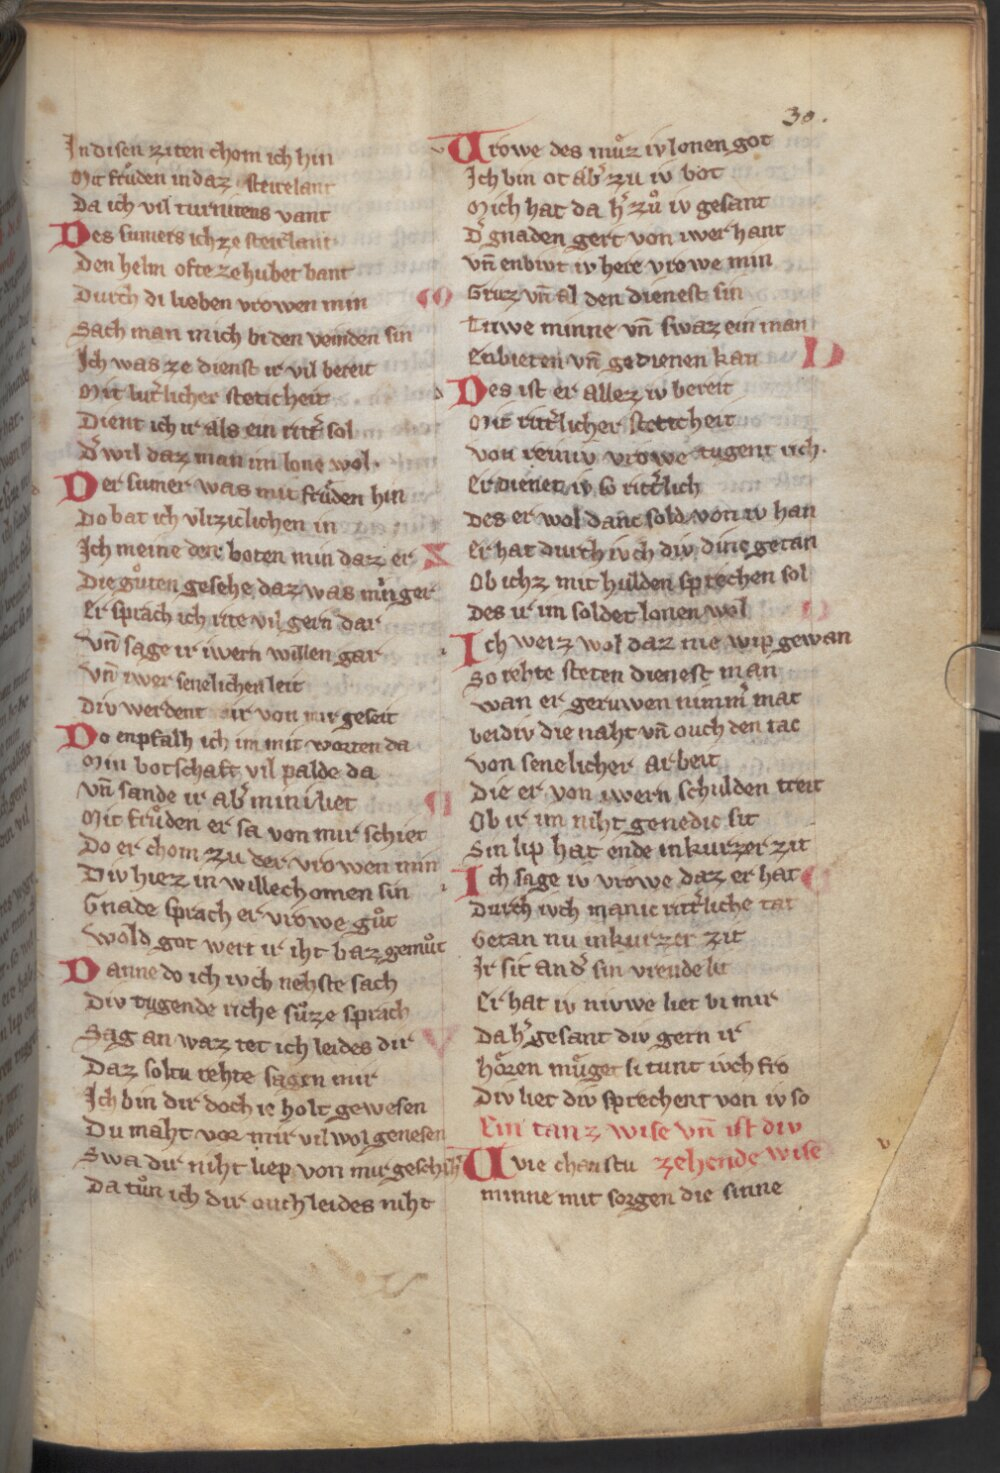 30.
In disen ziten chom ich hin
Mit frůden in daz steirelant
Da ich vil turnirens vant
Des sumers ich ze steir̾lant
Den helm ofte ze hubet bant
Durch di lieben vrowen min
Sach man mich bi den veinden sin
Ich was ze dienst ir vil bereit
Mit lut̾licher steticheit
Dient ich ir als ein ritt̾ sol
D̾ wil daz man im lone wol.
Der sumer was mit frůden hin
Do bat ich vlizichlichen in
Ich meine den boten min daz er
Die gůten gesehe daz was min ger
Er sprach ich rite vil gern dar
Vn̄ sage ir iwern willen gar
Vn̄ iwer senelichen leit
Div werdent ir von mir geseit
Do enpfalh ich im mit worten da
Min botschaft vil palde da
Vn̄ sande ir ab̾ mini liet
Mit frůden er sa von mir schiet
Do er chom zu der vrowen min
Div hiez in willechomen sin
Gnade sprach er vrowe gůt
Wold got wert ir iht baz gemůt
Danne do ich iwch nehste sach
Div tugende riche sůze sprach
Sag an waz tet ich leides dir
Daz soltu rehte sagen mir
Ich bin dir doch ie holt gewesen
Du maht vor mir vil wol genesen
Swa dir niht liep von mir geschiht
Da tůn ich dir ouch leides niht
Vrowe des můz iv lonen got
Ich bin ot ab̾ zu iv bot
Mich hat da h̾ zů iv gesant
D̾ gnaden gert von iwer hant
Vn̄ enbivt iv here vrowe min
Gruz vn̄ al den dienest sin
Triwe minne vn̄ swaz ein man
Enbieten vn̄ gedienen kan
Des ist er allez iv bereit
Mit ritt̾licher steticheit
Von reiniv vrowe tugent rich.
Er dienet iv so ritt̾lich
Des er wol danc sold von iv han
Er hat durch iwch div dinc getan
Ob ichz mit hulden sprechen sol
Des ir im soldet lonen wol
Ich weiz wol daz nie wip gewan
So rehte steten dienest man
Wan er geruwen nimm̾ mac
Beidiv die naht vn̄ ouch den tac
Von senelicher arbeit
Die er von iwern schulden treit
Ob ir im niht genedic sit
Sin lip hat ende in kurzer zit
Ich sage iv vrowe daz er hat
Durch iwch manic ritt̾liche tat
Getan nu in kurzer zit
Ir sit and̾ sin vreude lit
Er hat iv nivwe liet bi mir
Da h̾ gesant div gern ir
Hŏren můget si tunt iwch fro
Div liet div sprechent von iv so
Ein tanz wise vn̄ ist div
zehende wise
Wie chanstu
minne mit sorgen die sinne